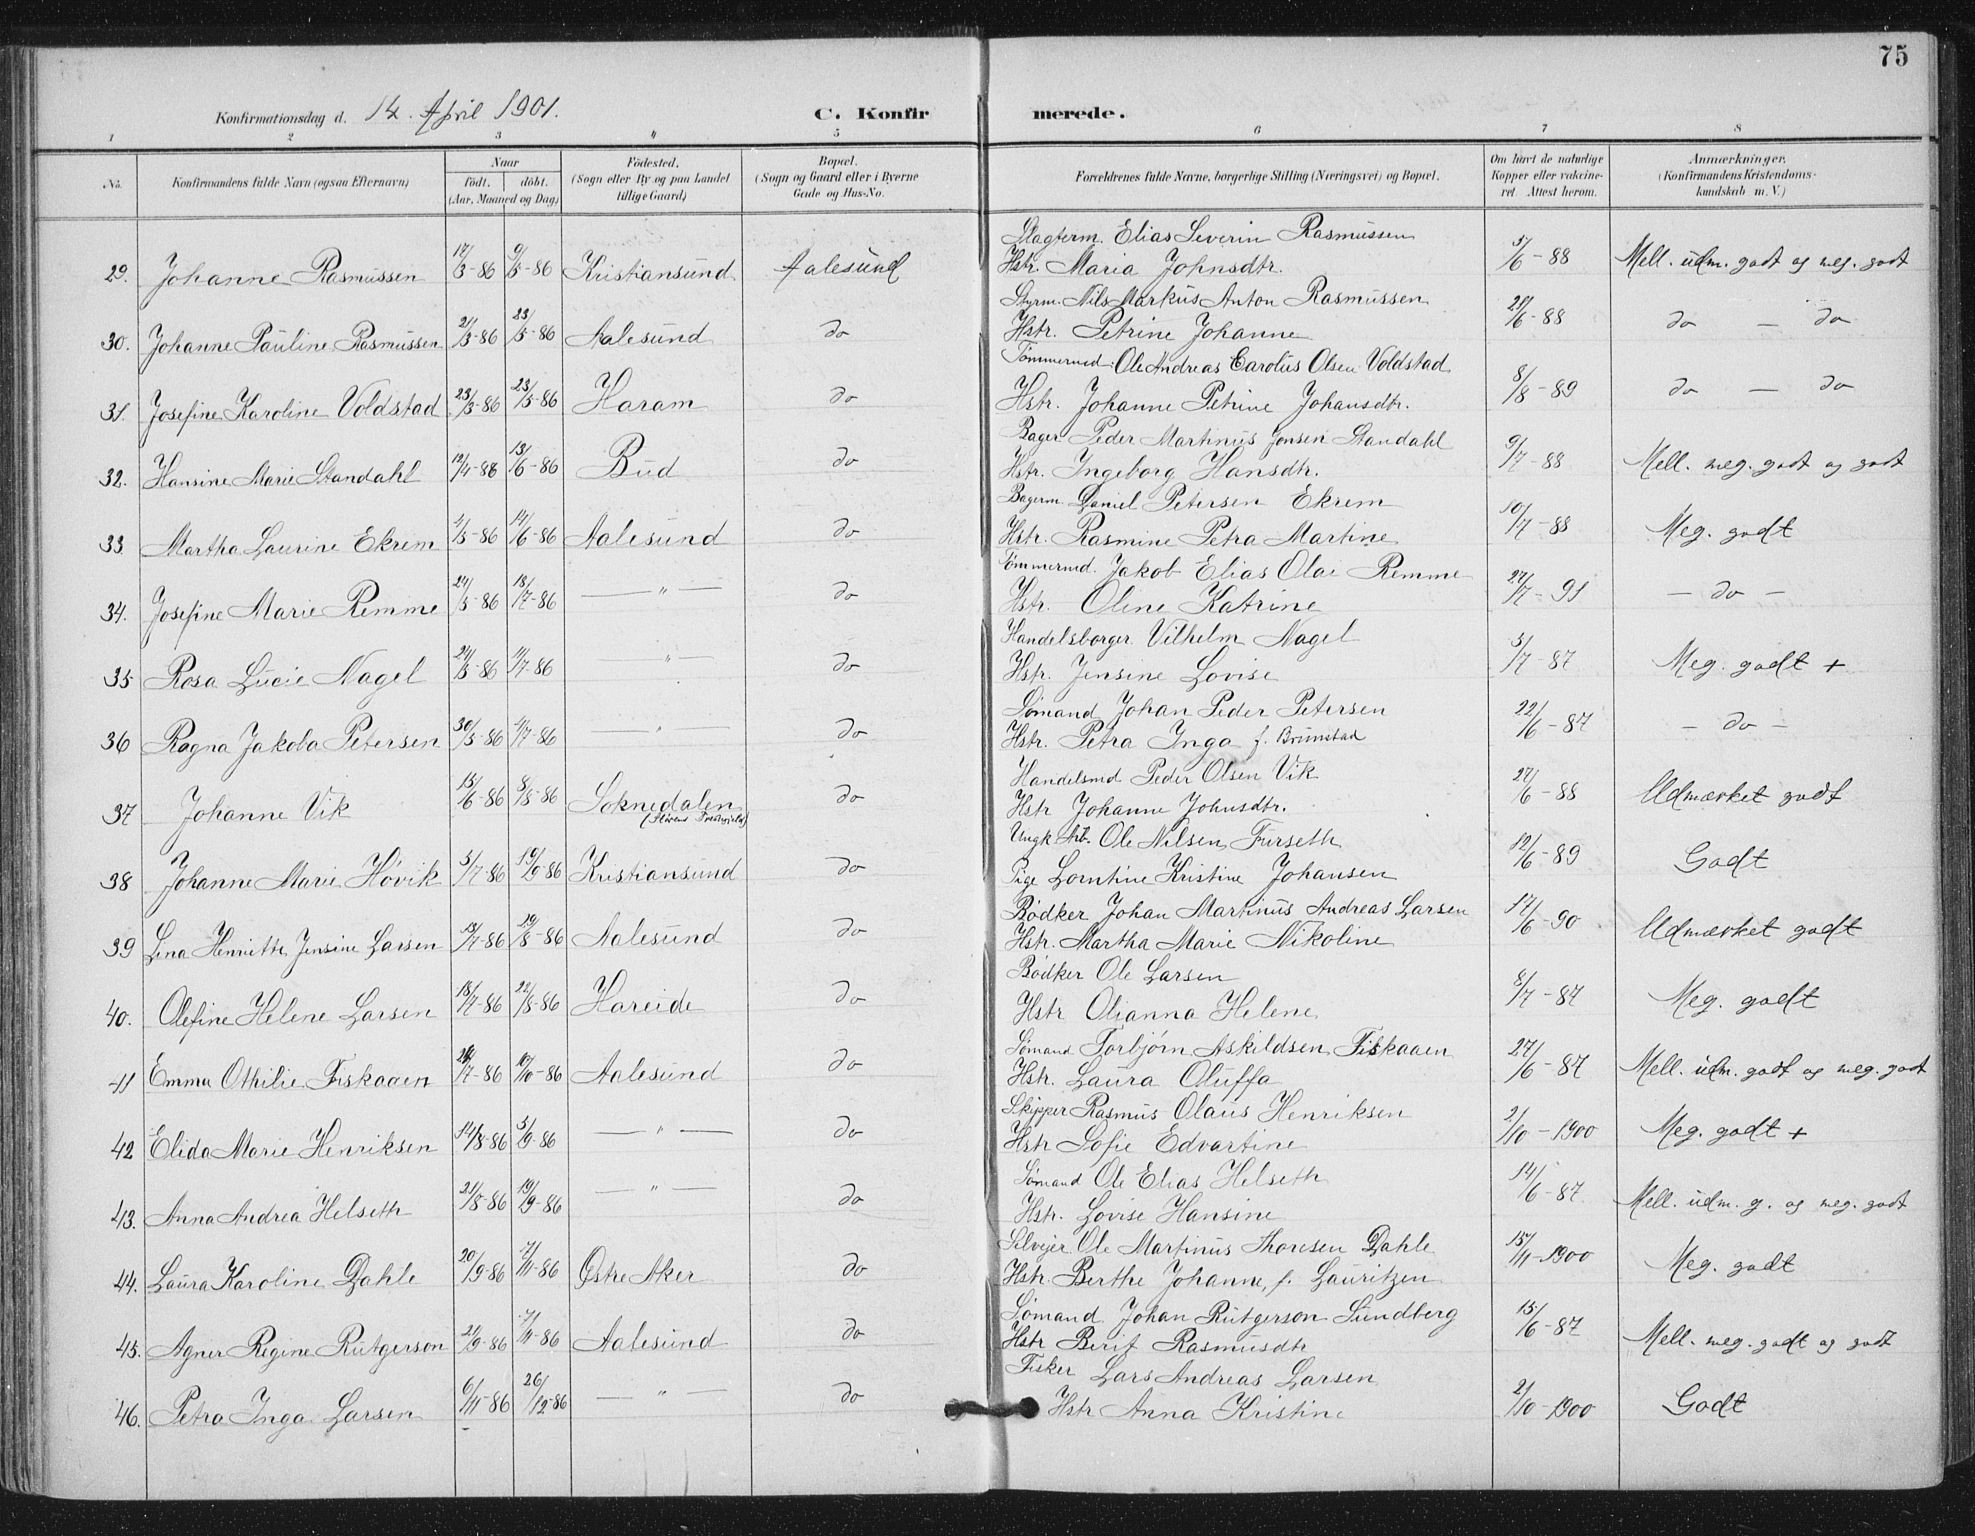 75
Konfirmationsdag d. 14. April 1901.
C. Konfirmerede.
1 2 3 " 5 6 7 8
No. Konfirmandens fulde Navn (ogsaa Efternavn) Naar födt. döbt. (Aar, Maaned og Dag) Födested. (Sogn eller By og paa Landet tillige Gaard) Bopæl. (Sogn og Gaard eller i Byerne Gade og Hus-No. Forældrenes fulde Navne, borgerlige Stilling (Næringsvei) og Bopæl. Om havt de naturlige Kopper eller vakcineret. Attest herom. Anmærkninger. (Konfirmandens Kristendomskundskab m. V.)
Slagterm. Elias Severin Rasmussen
29. Johanne Rasmussen 17/3-86 9/5-86 Kristiansund Aalesund Hstr. Maria Johnsdtr. 5/6-88 Mell. udm. godt og meg. godt
Styrm. Nils Markus Anton Rasmussen
30. Johanne Pauline Rasmussen 21/3-86 23/5-86 Aalesund do Hstr. Petrine Johanne 21/6-88 do — do
Tömmermd. Ole Andreas Carolus Olsen Voldstad
31. Josefine Karoline Voldstad 23/3-86 23/5-86 Haram do Hstr. Johanne Petrine Johansdtr. 8/8-89 do — do
Bager Peder Martinus Jonsen Standahl
32. Hansine Marie Standahl 12/4-86 13/6-86 Bud do Hstr. Ingeborg Hansdtr. 9/7-88 Mell. meg. godt og godt
Bagerm. Daniel Petersen Ekrem
33. Martha Laurine Ekrem 4/5-86 14/6-86 Aalesund do Hstr. Rasmine Petra Martine 10/7-88 Meg. godt
Tömmermd. Jakob Elias Olai Remme
34. Josefine Marie Remme 24/5-86 18/7-86 — " — do Hstr. Oline Katrine 27/7-91 — do —
Handelsborger Vilhelm Nagel
35 Rosa Lucie Nagel 24/5-86 11/7-86 — " — do Hstr. Jensine Lovise 5/7-87 Meg. godt +
Sømand Johan Peder Petersen
36 Ragna Jakoba Petersen 30/5-86 4/7-86 — " — do Hstr. Petra Inga f. Brunstad 22/6-87 — do —
Handelsmd Peder Olsen Vik
37 Johanne Vik 15/6-86 8/8-86 Soknedalen (Størens Prestegjeld) do Hstr Johanne Johnsdtr. 27/6-88 Udmærket godt
Ungk. Arb. Ole Nilsen Furseth
38 Johanne Marie Høvik 5/7-86 19/9-86 Kristiansund do Pige Lorntine Kristine Johansen 12/6-89 Godt
Bödker Johan Martinus Andreas Larsen
39 Lina Henriette Jensine Larsen 13/7-86 29/8-86 Aalesund do Hstr. Martha Marie Nikoline 14/6-90 Udmærket godt
Bödker Ole Larsen
40. Olefine Helene Larsen 18/7-86 22/8-86 Hareide do Hstr Olianna Helene 8/7-87 Meg. godt
Sømand Torbjörn Askildsen Fiskaaen
41 Emma Othilie Fiskaaen 7-86 10/10-86 Aalesund do Hstr. Laura Oluffa 27/6-87 Mell. udm. godt og meg. godt
Skipper Rasmus Olaus Henriksen
42 Elida Marie Henriksen 14/8-86 5/9-86 — " — do Hstr Sofie Edvartine 2/10-1900 Meg. godt +
Sømand Ole Elias Helseth
43. Anna Andrea Helseth 21/8-86 19/9-86 — " — do Hstr. Lovise Hansine 14/6-87 Mell. udm. g. og meg. godt
Selvejer Ole Martinus Thoresen Dahle
44. Laura Karoline Dahle 20/9-86 7/11-86 Østre Aker do Hstr. Berthe Johanne, f. Lauritzen 15/11-1900 Meg. godt
Sømand Johan Rutgerson Sundberg
45. Agner Regine Rutgerson 21/9-86 7/11-86 Aalesund do Hstr Berit Rasmusdtr 15/6-87 Mell. meg. godt og godt
Fisker Lars Andreas Larsen
46. Petra Inga Larsen 6/11-86 26/12-86 — " — do Hstr Anna Kristine 2/10-1900 Godt